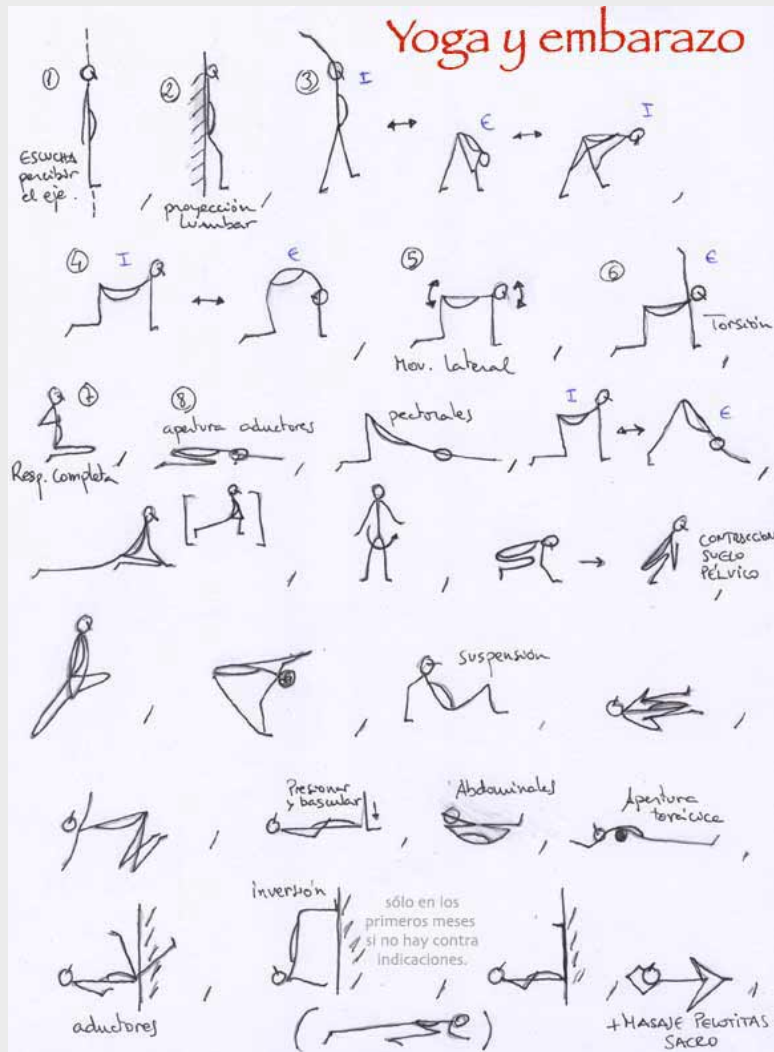 Yoga y embarazo
①
②
③
I
E
I
ESCUCHA
percibir
el eje.
proyección
Lumbar
④
I
E
⑤
Mov. Lateral
⑥
E
Torsión
⑦
Resp. Completa
⑧
apertura aductores
pectorales
I
E
CONTRACCION
SUELO
PÉLVICO
suspensión
Presionar
y bascular
Abdominales
Apertura
torácica
aductores
inversión
sólo en los
primeros meses
si no hay contra
indicaciones.
+ MASAJE PELOTITAS
SACRO